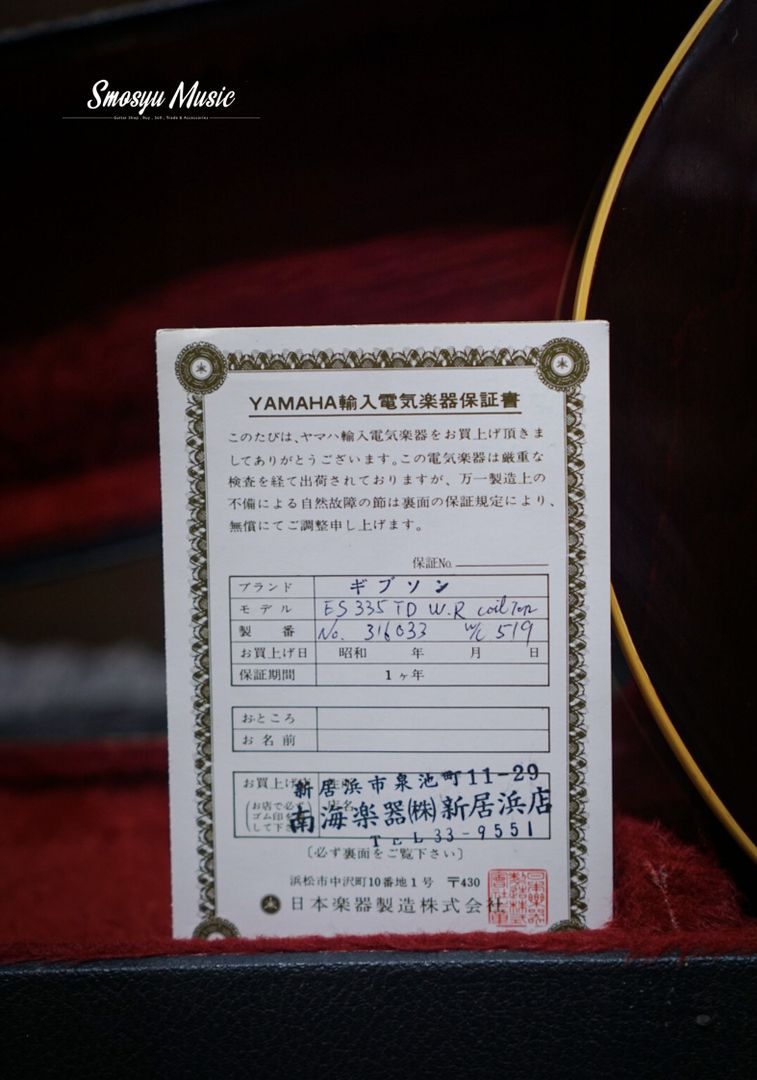 Smosyu Music
Guitar Shop . Buy . Sell . Trade & Accessories
YAMAHA輸入電気楽器保証書
このたびは、ヤマハ輸入電気楽器をお買上げ頂きま
してありがとうございます。この電気楽器は厳重な
検査を経て出荷されておりますが、万一製造上の
不備による自然故障の節は裏面の保証規定により、
無償にてご調整申し上げます。
保証No.
ブランド ギブソン
モデル ES 335 TD W.R coil Tap
製番 No. 316033 W/C 519
お買上げ日 昭和 年 月 日
保証期間 1ヶ年
おところ
お名前
お買上げ店
新居浜市泉池町11-29
(お店で必ず
ゴム印を
して下さい) 店名
南海楽器(株)新居浜店
TEL 33-9551
〔必ず裏面をご覧下さい〕
浜松市中沢町10番地1号 〒430
日本楽器製造株式会社